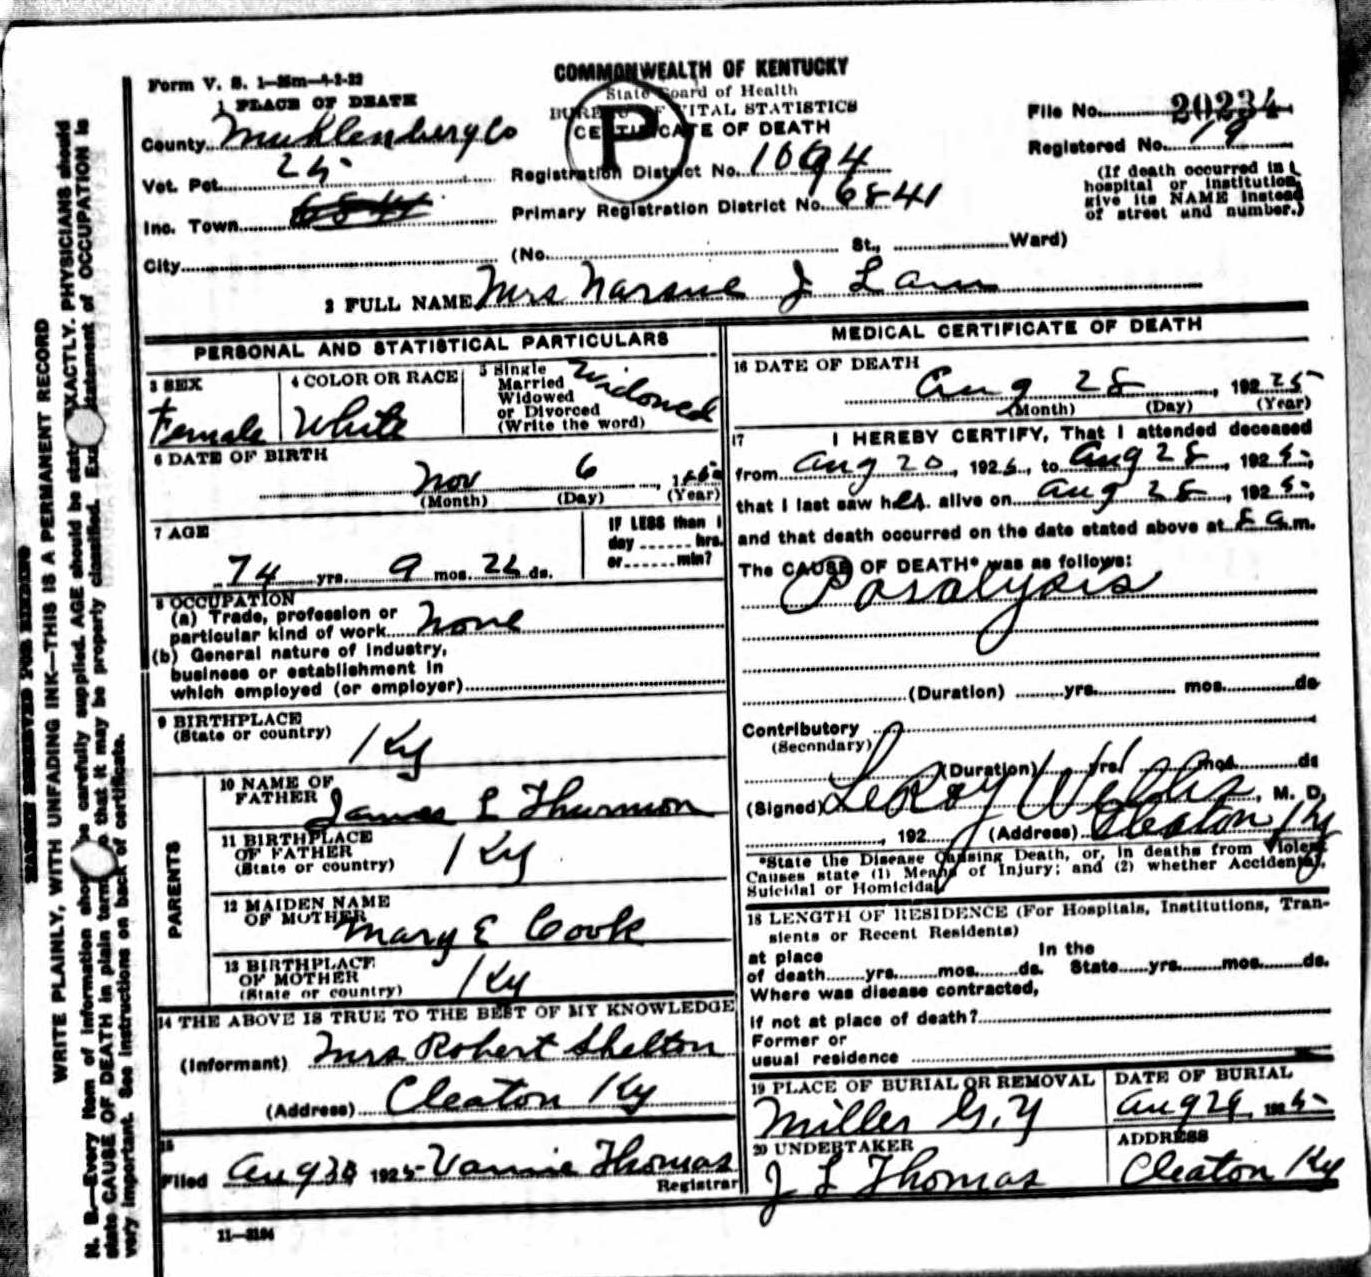 Form V. S. 1—25m—4-2-22
COMMONWEALTH OF KENTUCKY
State Board of Health
BUREAU OF VITAL STATISTICS
CERTIFICATE OF DEATH
P
File No. 20234
Registered No. 19
(If death occurred in
hospital or institution,
give its NAME instead
of street and number.)
1 PLACE OF DEATH
County Muhlenberg Co
Vot. Pct. 25
Registration District No. 1094
Inc. Town
Primary Registration District No. 6841
City (No. St., Ward)
2 FULL NAME Mrs J Lam
PERSONAL AND STATISTICAL PARTICULARS
3 SEX
Female
4 COLOR OR RACE
White
5 Single
Married
Widowed
or Divorced
(Write the word)
Widowed
6 DATE OF BIRTH
Nov 6
(Month) (Day) (Year)
7 AGE
74 yrs. 9 mos. 22 ds.
IF LESS than 1
day hrs.
or min?
8 OCCUPATION
(a) Trade, profession or
particular kind of work None
(b) General nature of Industry,
business or establishment in
which employed (or employer)
9 BIRTHPLACE
(State or country) Ky
PARENTS
10 NAME OF
FATHER James L Thurmon
11 BIRTHPLACE
OF FATHER
(State or country) Ky
12 MAIDEN NAME
OF MOTHER Mary E Cook
13 BIRTHPLACE
OF MOTHER
(State or country) Ky
14 THE ABOVE IS TRUE TO THE BEST OF MY KNOWLEDGE
(Informant) Mrs Robert Shelton
(Address) Cleaton Ky
15
Filed Aug 30 1925 Vannie Thomas
Registrar
11—3184
MEDICAL CERTIFICATE OF DEATH
16 DATE OF DEATH
Aug 28, 192 25
(Month) (Day) (Year)
17 I HEREBY CERTIFY, That I attended deceased
from Aug 20, 1925, to Aug 28, 1925,
that I last saw her alive on Aug 28, 1925,
and that death occurred on the date stated above at 8 a.m.
The CAUSE OF DEATH* was as follows:
Paralysis
(Duration) yrs. mos. ds
Contributory
(Secondary)
(Duration) yrs. mos. ds
(Signed) LeRoy Willis, M. D.
, 192 (Address) Cleaton Ky
*State the Disease Causing Death, or, in deaths from Violent
Causes state (1) Means of Injury; and (2) whether Accidental,
Suicidal or Homicidal
18 LENGTH OF RESIDENCE (For Hospitals, Institutions, Tran-
sients or Recent Residents)
at place In the
of death yrs. mos. ds. State yrs. mos. ds.
Where was disease contracted,
if not at place of death?
Former or
usual residence
19 PLACE OF BURIAL OR REMOVAL
Miller G.Y
DATE OF BURIAL
Aug 29, 1925
20 UNDERTAKER
J L Thomas
ADDRESS
Cleaton Ky
MARGIN RESERVED FOR BINDING
WRITE PLAINLY, WITH UNFADING INK—THIS IS A PERMANENT RECORD
N. B.—Every item of information should be carefully supplied. AGE should be stated EXACTLY. PHYSICIANS should
state CAUSE OF DEATH in plain terms, so that it may be properly classified. Exact statement of OCCUPATION is
very important. See instructions on back of certificate.